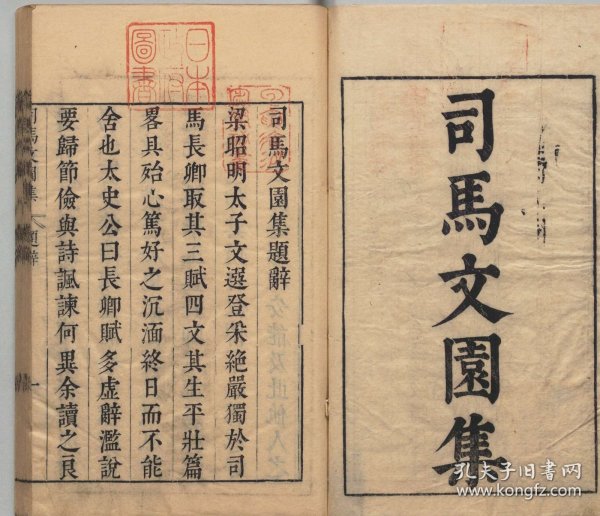 司馬文園集
司馬文園集題辭
梁昭明太子文選登采絕嚴獨於司
馬長卿取其三賦四文其生平壯篇
畧具殆心篤好之沉湎終日而不能
舍也太史公曰長卿賦多虛辭濫說
要歸節儉與詩諷諫何異余讀之良
司馬文園集
題辭
一
日本
政府
圖書
孔夫子旧书网
www.kongfz.com